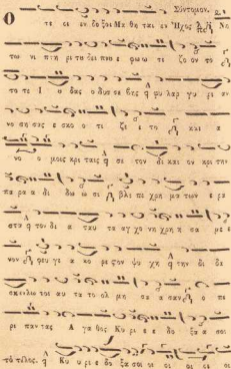 Σύντομον.
Ο τε οι εν δο ξοι Μα θη ται εν Ἦχος Νο
τω νι πτη ρι του δει πνου ε φω τι ζον το
το τε Ι ου δας ο δυσ σε βης φι λαρ γυ ρι αν
νο ση σας ε σκο τι ζε το και α
νο μοις κρι ταις σε τον δι και ον κρι την
πα ρα δι δω σι βλε πε χρη μα των ε ρα
στα τον δι α ταυ τα αγ χο νη χρη σα με
νον φευ γε α κο ρε στον ψυ χη την δι δα
σκα λω τοι αυ τα τολ μη σα σαν ο πε
ρι παν τας Α γα θος Κυ ρι ε ε δο ξα σοι
τὸ τέλος. Κυ ρι ε δο ξα σοι οι οι οι οι οι